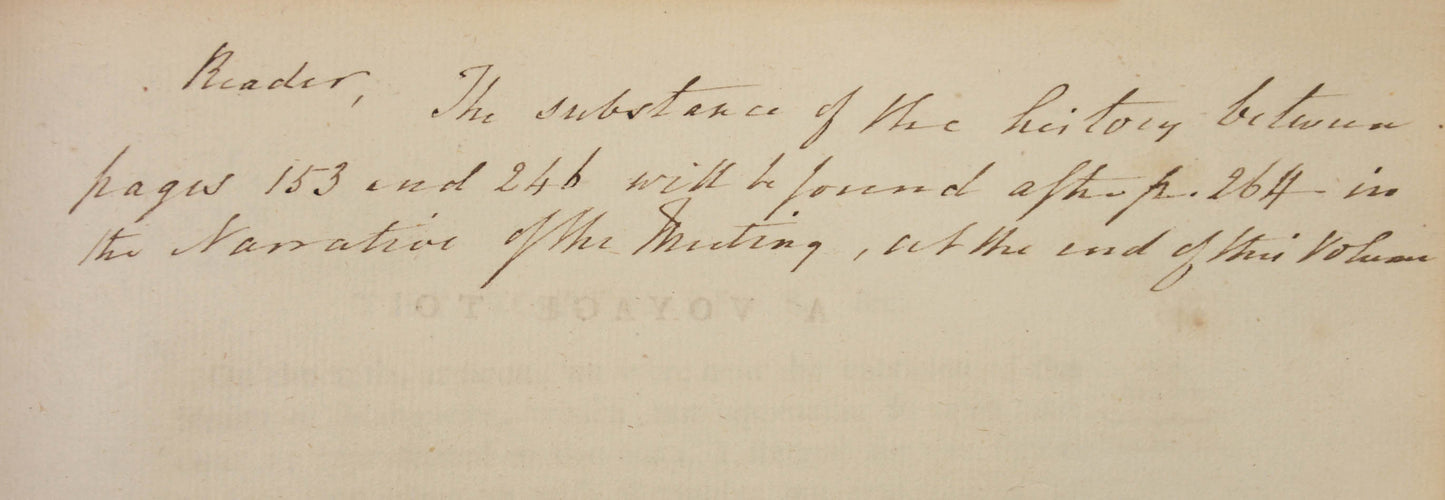 Reader, The substance of the history between
pages 153 and 246 will be found after p. 264 in
the Narrative of the Meeting, at the end of this Volume
A VOYAGE TO